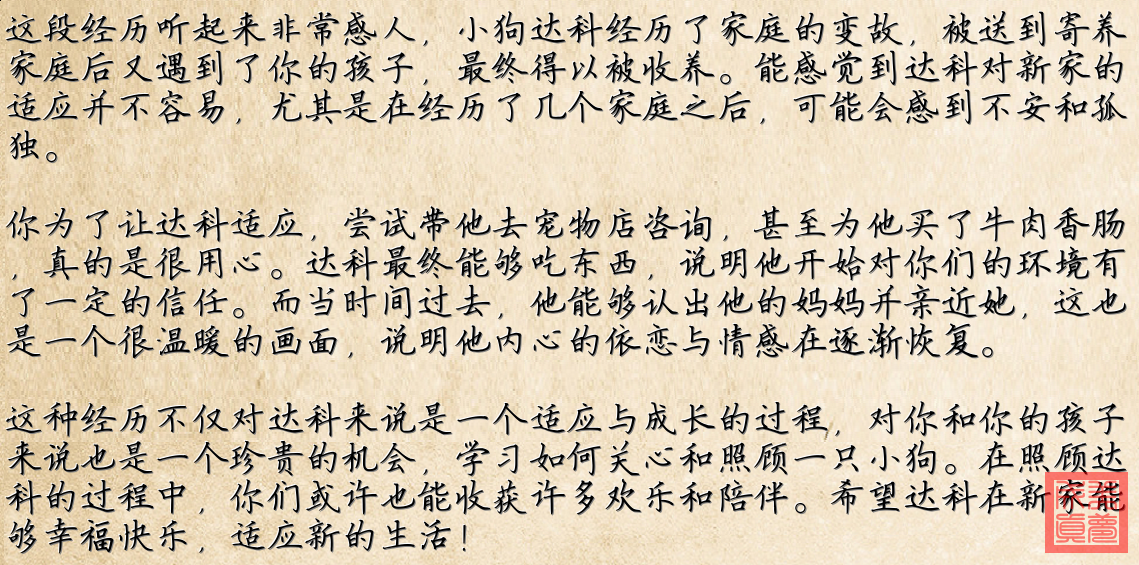 这段经历听起来非常感人，小狗达科经历了家庭的变故，被送到寄养
家庭后又遇到了你的孩子，最终得以被收养。能感觉到达科对新家的
适应并不容易，尤其是在经历了几个家庭之后，可能会感到不安和孤
独。
你为了让达科适应，尝试带他去宠物店咨询，甚至为他买了牛肉香肠
，真的是很用心。达科最终能够吃东西，说明他开始对你们的环境有
了一定的信任。而当时间过去，他能够认出他的妈妈并亲近她，这也
是一个很温暖的画面，说明他内心的依恋与情感在逐渐恢复。
这种经历不仅对达科来说是一个适应与成长的过程，对你和你的孩子
来说也是一个珍贵的机会，学习如何关心和照顾一只小狗。在照顾达
科的过程中，你们或许也能收获许多欢乐和陪伴。希望达科在新家能
够幸福快乐，适应新的生活！